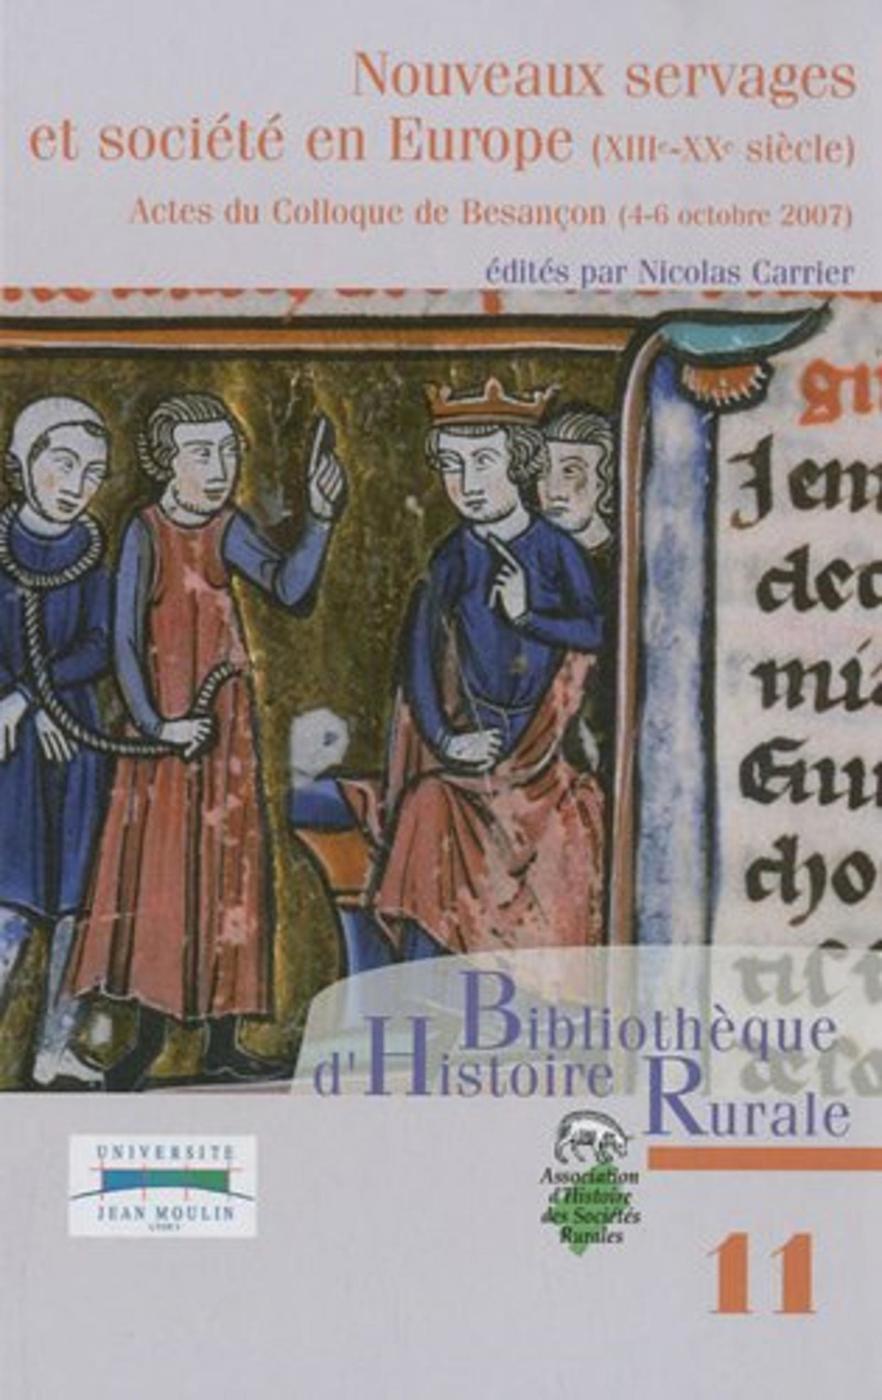 Nouveaux servages
et société en Europe (XIIIe-XXe siècle)
Actes du Colloque de Besançon (4-6 octobre 2007)
édités par Nicolas Carrier
Jem
dec
mi
cho
Bibliothèque
d'Histoire
Rurale
UNIVERSITE
JEAN MOULIN
LYON 3
Association
d'Histoire
des Sociétés
Rurales
11